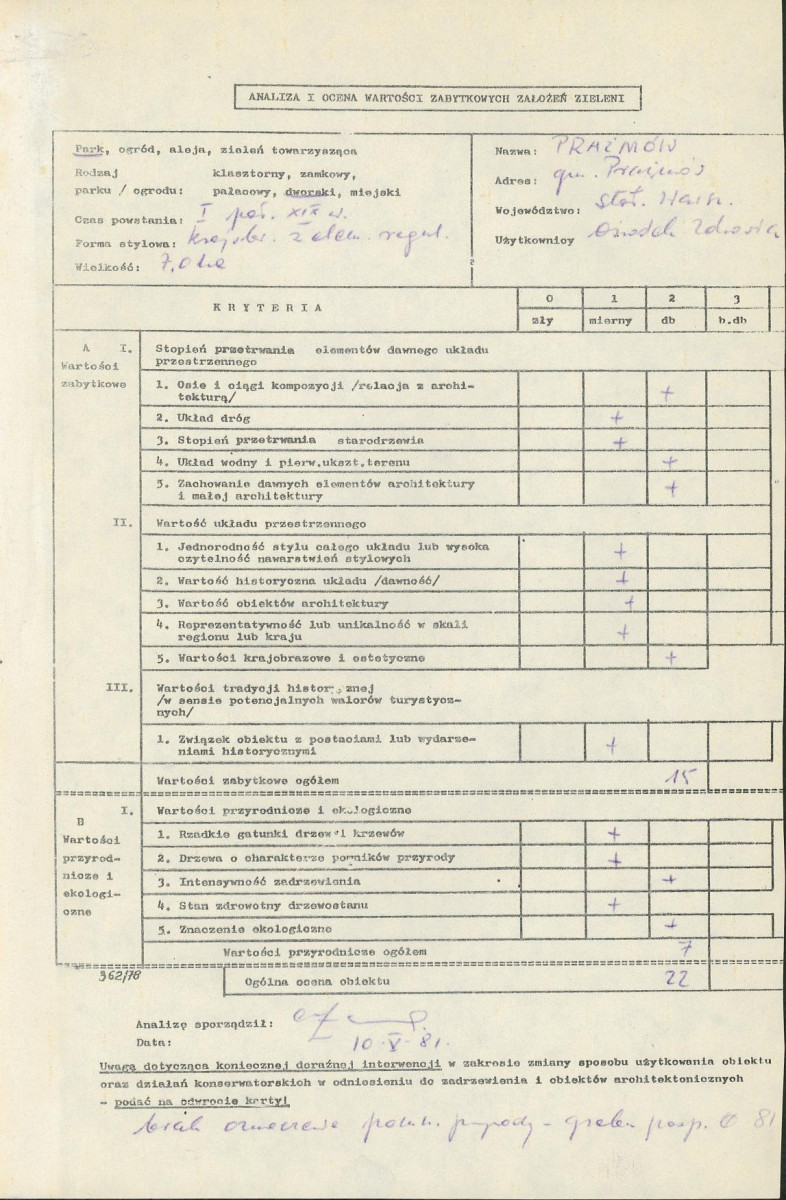 ANALIZA I OCENA WARTOŚCI ZABYTKOWYCH ZAŁOŻEŃ ZIELENI
Park, ogród, aleja, zieleń towarzysząca
Rodzaj klasztorny, zamkowy,
parku / ogrodu: pałacowy, dworski, miejski
Czas powstania: I poł. XIX w.
Forma stylowa: krajobr. z elem. regul.
Wielkość: 7,0 ha
Nazwa: PRAŻMÓW
Adres: gm. Prażmów
Województwo: stoł. Warsz.
Użytkownicy Ośrodek Zdrowia
KRYTERIA 0 1 2 3
zły mierny db b.db
A I. Stopień przetrwania elementów dawnego układu
Wartości przestrzennego
zabytkowe
1. Osie i ciągi kompozycji /relacja z archi-
tekturą/ +
2. Układ dróg +
3. Stopień przetrwania starodrzewia +
4. Układ wodny i pierw.ukszt.terenu +
5. Zachowanie dawnych elementów architektury
i małej architektury +
II. Wartość układu przestrzennego
1. Jednorodność stylu całego układu lub wysoka
czytelność nawarstwień stylowych +
2. Wartość historyczna układu /dawność/ +
3. Wartość obiektów architektury +
4. Reprezentatywność lub unikalność w skali
regionu lub kraju +
5. Wartości krajobrazowe i estetyczne +
III. Wartości tradycji historycznej
/w sensie potencjalnych walorów turystycz-
nych/
1. Związek obiektu z postaciami lub wydarze-
niami historycznymi +
Wartości zabytkowe ogółem 15
I. Wartości przyrodnicze i ekologiczne
B
Wartości
przyrod-
nicze i
ekologi-
czne
1. Rzadkie gatunki drzew i krzewów +
2. Drzewa o charakterze pomników przyrody +
3. Intensywność zadrzewienia +
4. Stan zdrowotny drzewostanu +
5. Znaczenie ekologiczne +
Wartości przyrodnicze ogółem 7
362/78
Ogólna ocena obiektu 22
Analizę sporządził:
Data: 10.V.81.
Uwaga dotycząca koniecznej doraźnej interwencji w zakresie zmiany sposobu użytkowania obiektu
oraz działań konserwatorskich w odniesieniu do zadrzewienia i obiektów architektonicznych
- podać na odwrocie karty!
brak pomn. przyrody - grab posp. 81